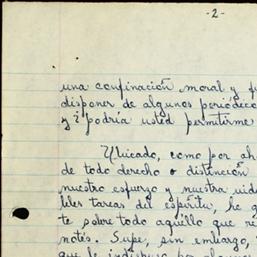 -2-
una confinación moral y
disponer de algunos periódico
y ¿podría usted permitirme
Ubicado, como por ah
de todo derecho o distinción
nuestro esfuerzo y nuestra vid
bles tareas del espíritu, he
te sobre todo aquello que re
notés. Supe, sin embargo,
que le indispuso por algunos